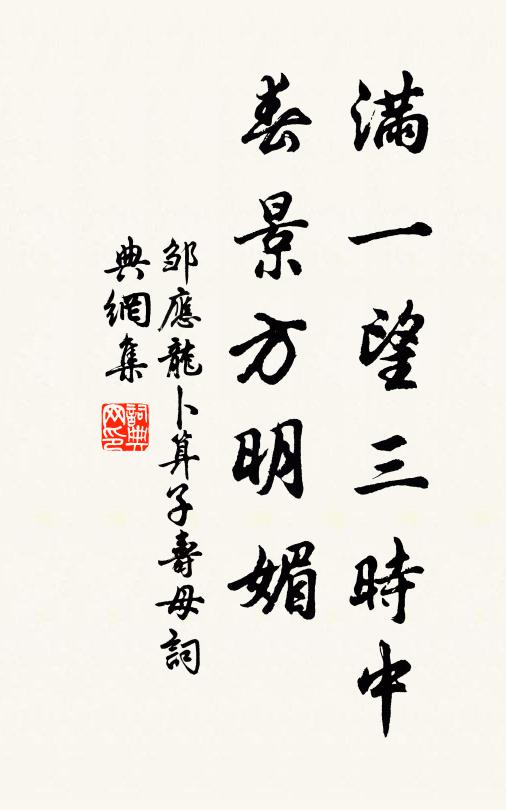 滿一望三時中
春景方明媚
鄒應龍卜算子壽母詞
典網集
詞典网印